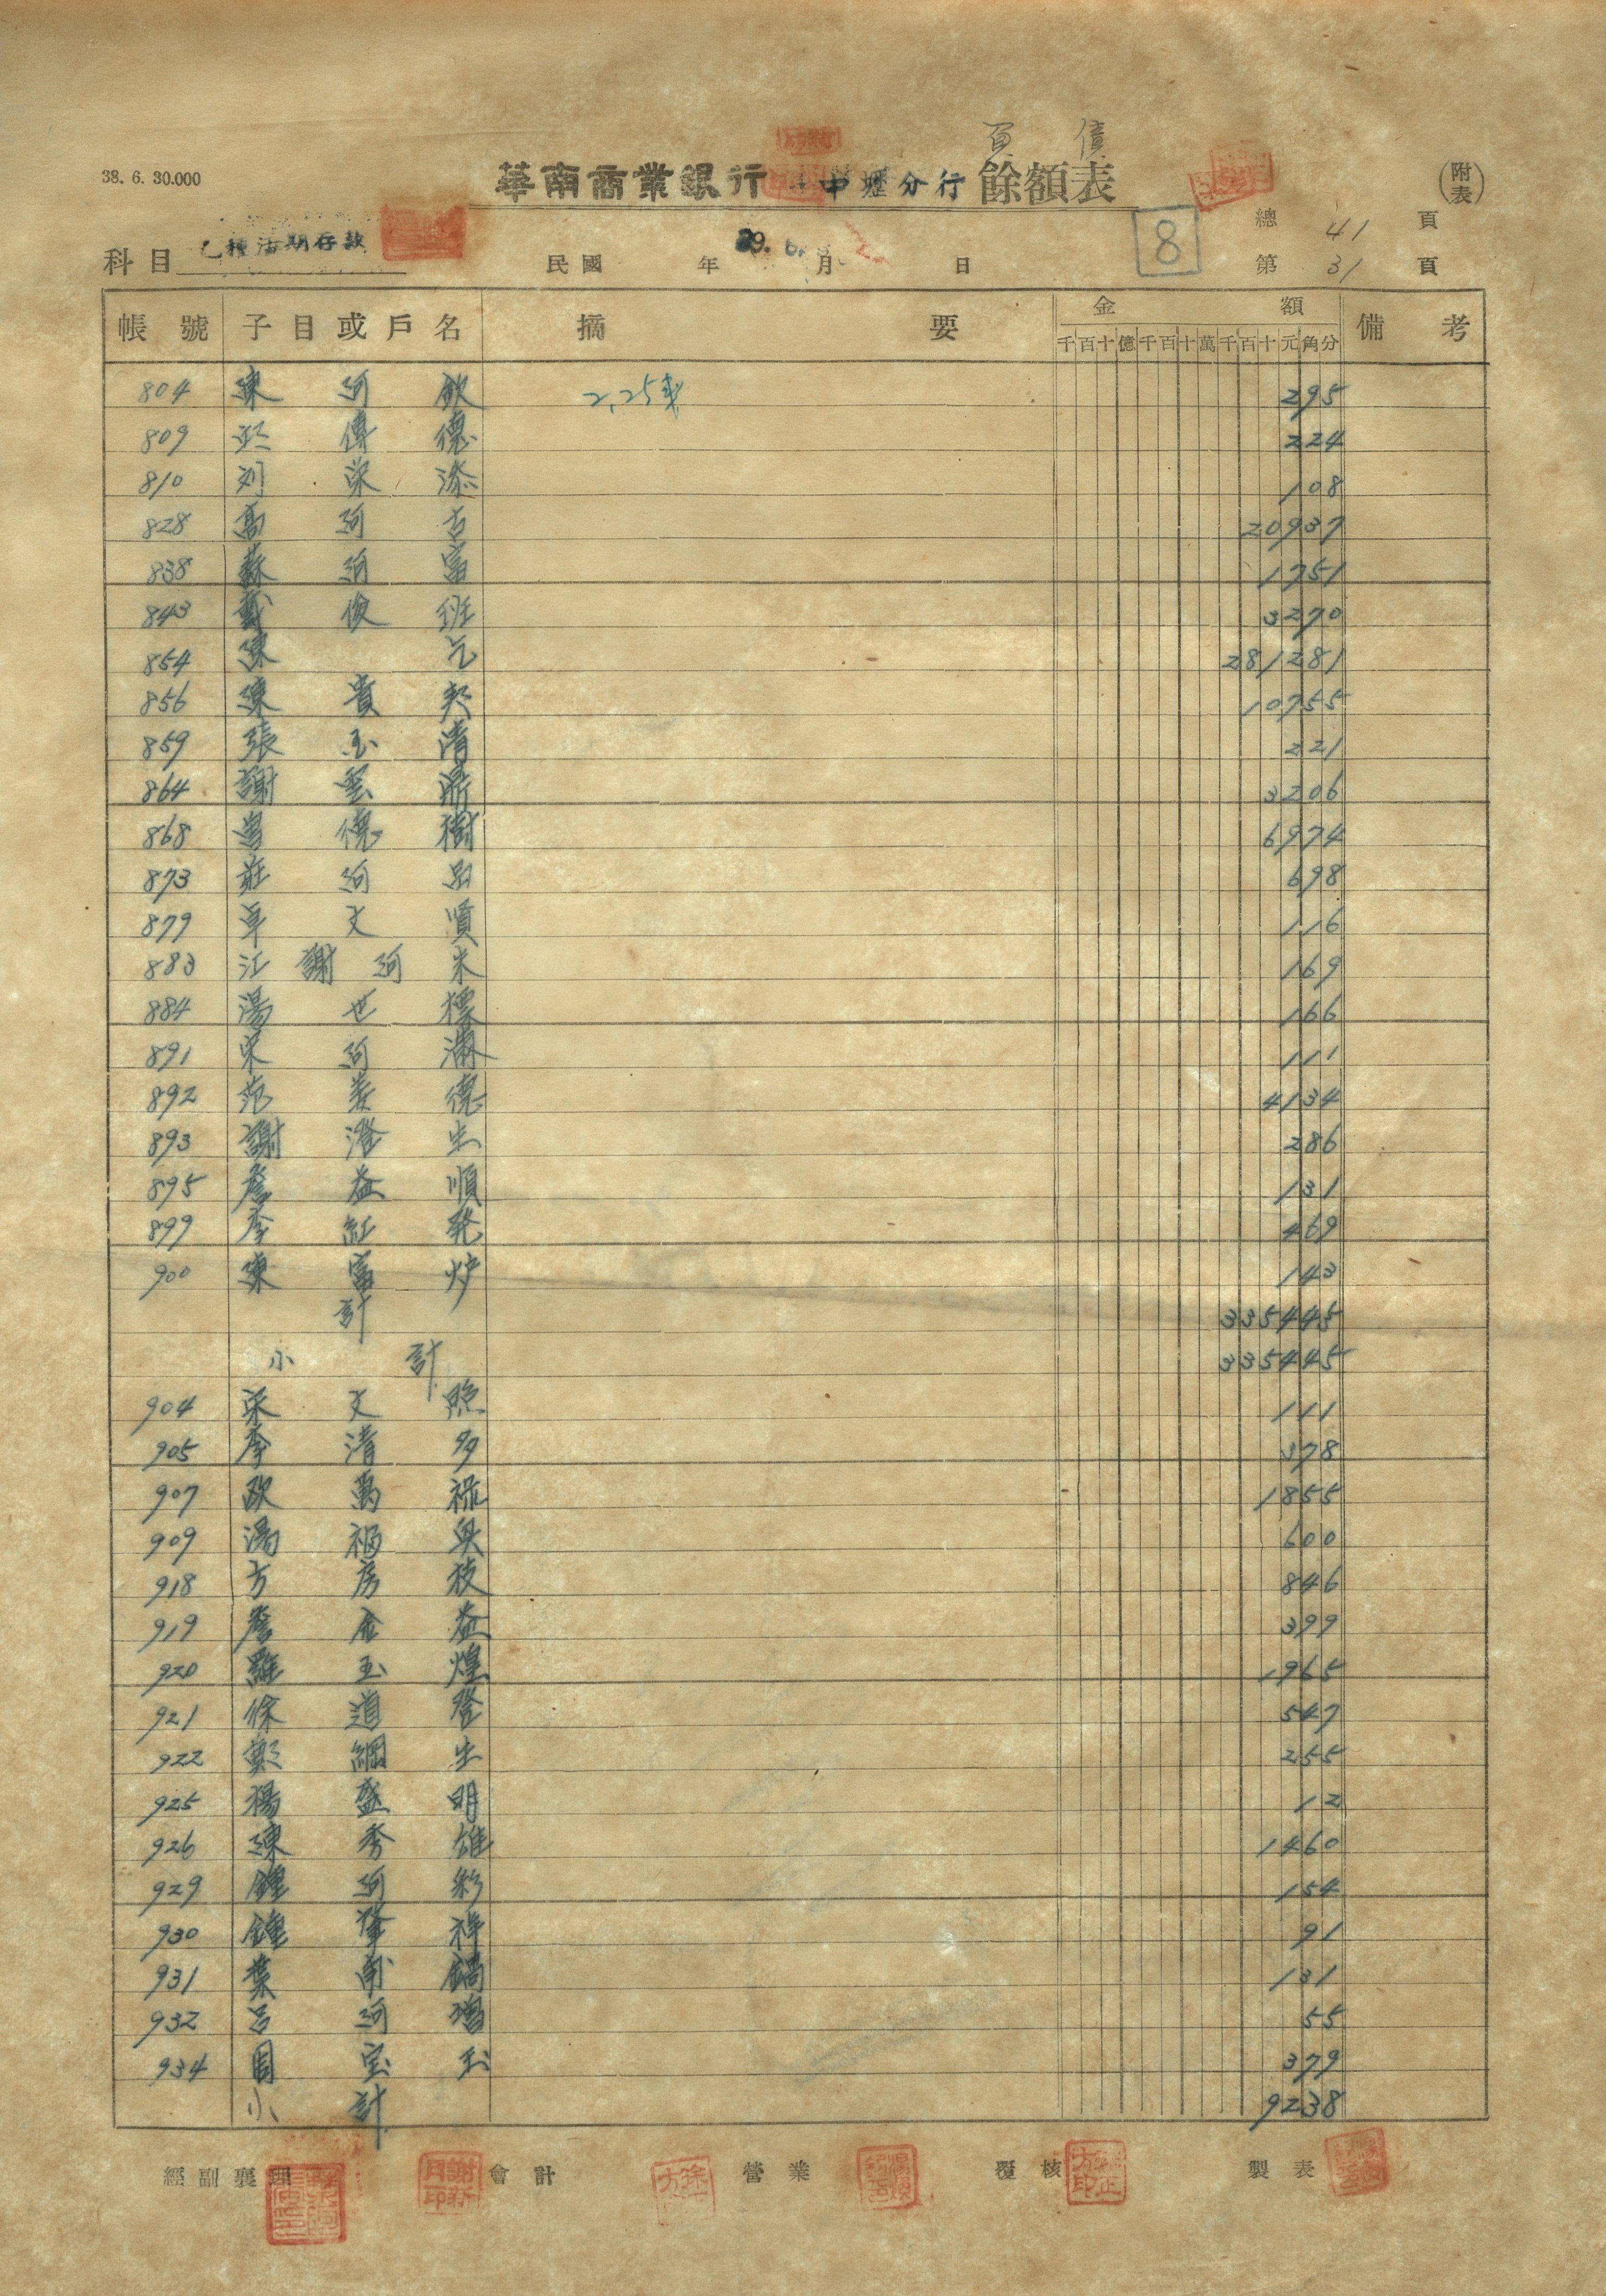 38. 6. 30.000
華南商業銀行 中壢分行 餘額表
(附表)
8
總 41 頁
科目 乙種活期存款
民國 39. 6. 年 月 日
第 31 頁
帳號 子目或戶名 摘要 金額 備考
千百十億千百十萬千百十元角分
804 陳阿欽 2,25 295
809 傳德 224
810 刘荣添 108
828 高阿古 20937
838 蘇阿富 1751
843 戴俊班 3270
854 陳乞 281281
856 陳貴契 10755
859 張玉清 221
864 謝雲 3206
868 德樹 6974
873 莊阿 698
879 卓文賢 116
883 江謝阿米 169
884 湯世標 166
891 宋阿滿 111
892 范姜德 4134
893 謝澄生 286
895 詹益順 131
899 李紅発 469
900 陳富炉 143
計 335445
小計 335445
904 梁文照 111
905 李清多 378
907 欧萬祿 1855
909 湯福奥 600
918 方房枝 846
919 詹金益 399
920 羅玉煌 1965
921 徐道登 547
922 綢生 255
925 楊盛明 12
926 陳秀雄 1460
929 鍾阿彩 154
930 鍾肇祥 91
931 葉南鍋 131
932 呂阿增 55
934 周宝玉 379
小計 9238
經副襄理 會計 營業 覆核 製表